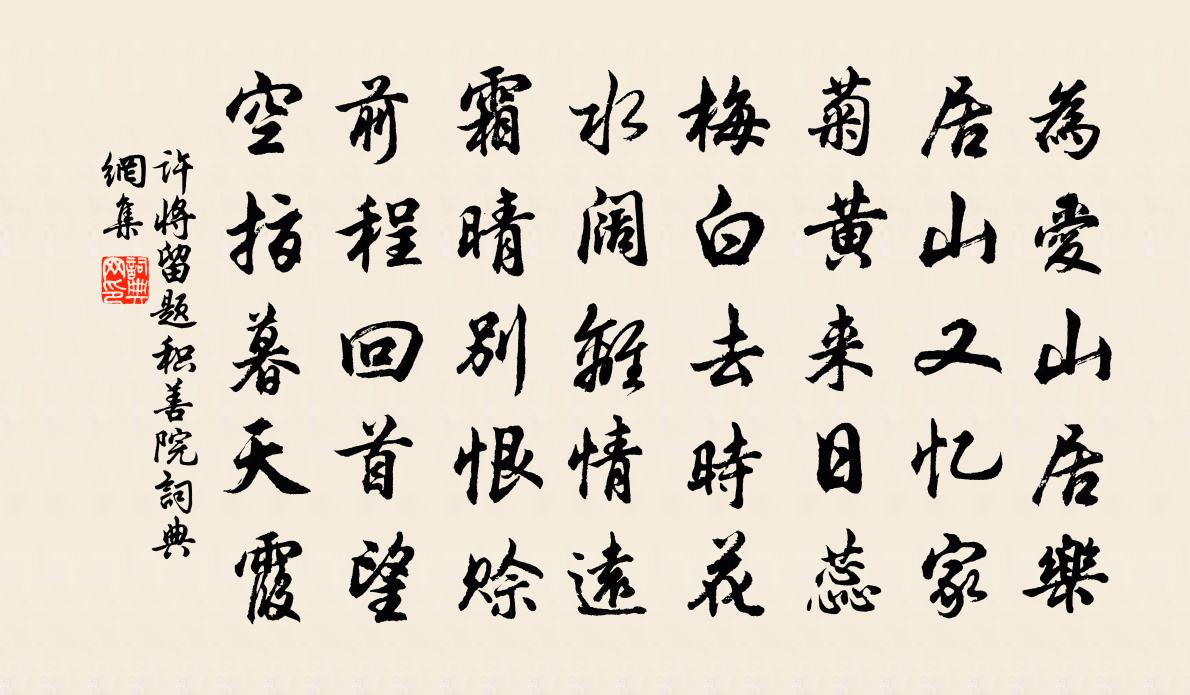 為愛山居樂
居山又忆家
菊黄来日蕊
梅白去時花
水阔離情遠
霜晴别恨赊
前程回首望
空指暮天霞
许將留题积善院詞典
網集
詞典
网印